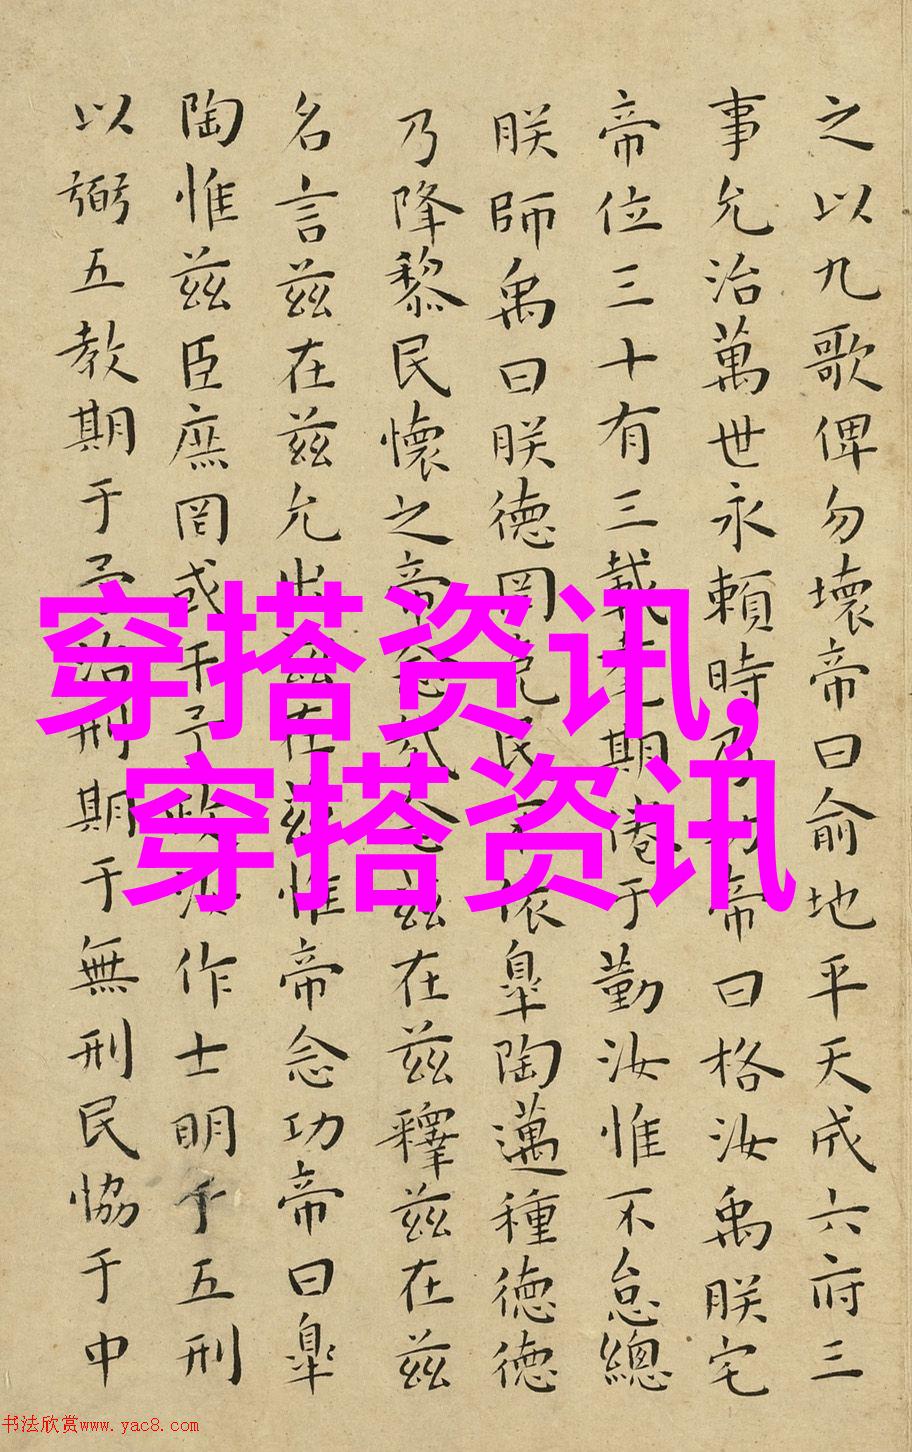 之以九歌俾勿壞帝曰俞地平天成六府三
事允治萬世永賴時乃功帝曰格汝禹朕宅
帝位三十有三載耄期倦于勤汝惟不怠總
朕師禹曰朕德罔克民不依皐陶邁種德德
乃降黎民懷之帝念哉念茲在茲釋茲在茲
名言茲在茲允出茲在茲惟帝念功帝曰皐
陶惟茲臣庶罔或干予政汝作士明于五刑
以弼五教期于予治刑期于無刑民恊于中
穿搭资讯,
穿搭资讯
书法欣赏www.yac8.com